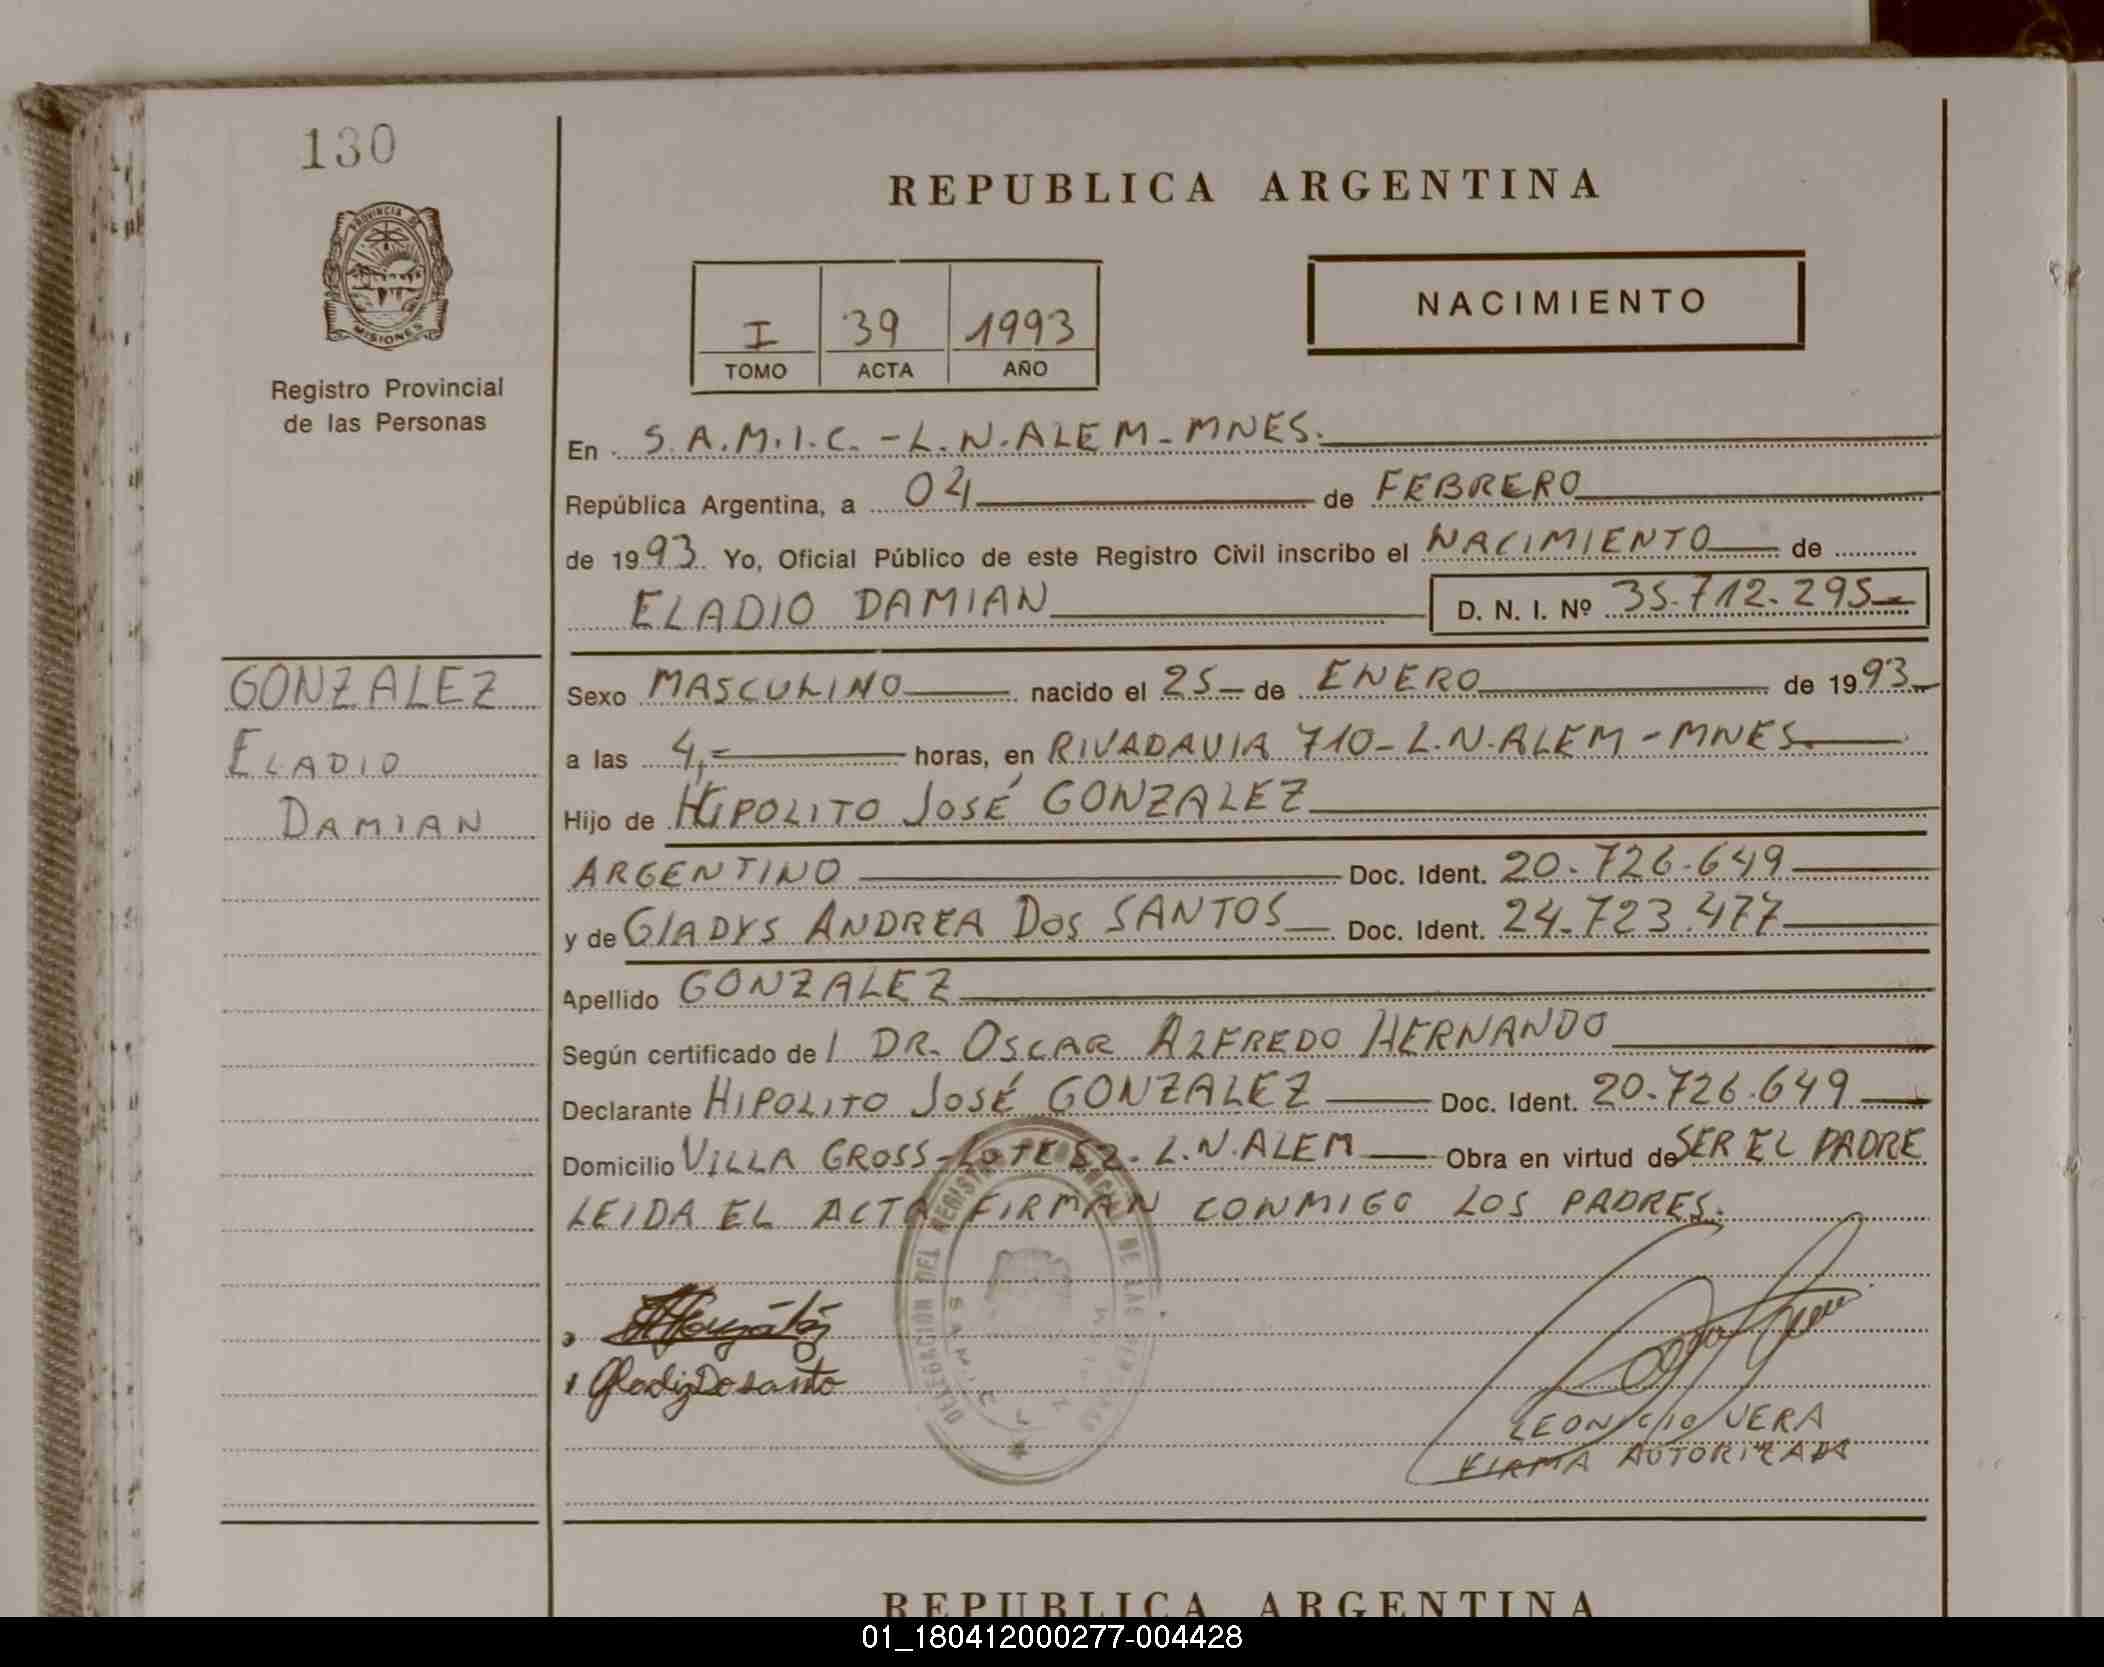 130
REPUBLICA ARGENTINA
PROVINCIA DE
MISIONES
Registro Provincial
de las Personas
I 39 1993
TOMO ACTA AÑO
NACIMIENTO
En S.A.M.I.C. - L.N.ALEM - MNES.
República Argentina, a 04 de FEBRERO
de 1993. Yo, Oficial Público de este Registro Civil inscribo el NACIMIENTO de
ELADIO DAMIAN D. N. I. Nº 35.712.295
GONZALEZ
ELADIO
DAMIAN
Sexo MASCULINO nacido el 25 de ENERO de 1993
a las 4,= horas, en RIVADAVIA 710 - L.N.ALEM - MNES
Hijo de HIPOLITO JOSÉ GONZALEZ
ARGENTINO Doc. Ident. 20.726.649
y de GLADYS ANDREA DOS SANTOS Doc. Ident. 24.723.477
Apellido GONZALEZ
Según certificado de l DR. OSCAR ALFREDO HERNANDO
Declarante HIPOLITO JOSÉ GONZALEZ Doc. Ident. 20.726.649
Domicilio VILLA GROSS - LOTE 52. L.N.ALEM Obra en virtud de SER EL PADRE
LEIDA EL ACTA FIRMAN CONMIGO LOS PADRES.
DELEGACION DEL REGISTRO DE LAS
Gladiz Dosanto
LEONCIO VERA
FIRMA AUTORIZADA
REPUBLICA ARGENTINA
01_180412000277-004428